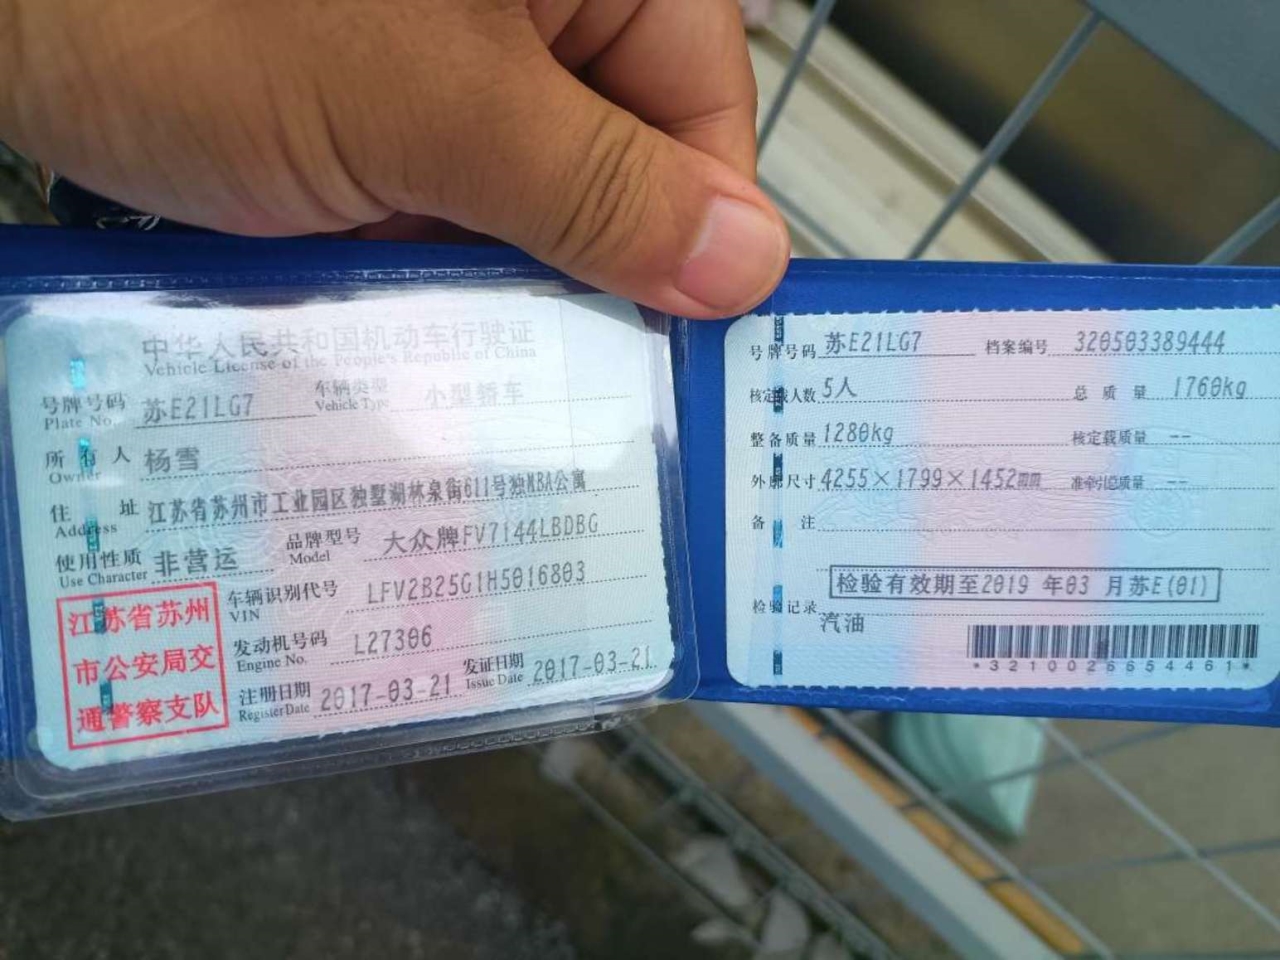 中华人民共和国机动车行驶证
Vehicle License of the People's Republic of China
号牌号码 苏E21LG7 车辆类型 小型轿车
Plate No. Vehicle Type
所有人 杨雪
Owner
住址 江苏省苏州市工业园区独墅湖林泉街611号独MBA公寓
Address
使用性质 非营运 品牌型号 大众牌FV7144LBDBG
Use Character Model
江苏省苏州
市公安局交
通警察支队
车辆识别代号 LFV2B25G1H5016803
VIN
发动机号码 L27306
Engine No.
注册日期 2017-03-21 发证日期 2017-03-21
Register Date Issue Date
号牌号码 苏E21LG7 档案编号 320503389444
核定载人数 5人 总质量 1760kg
整备质量 1280kg 核定载质量 --
外廓尺寸 4255×1799×1452mm 准牵引总质量 --
备注
检验有效期至2019 年03 月苏E(01)
检验记录
汽油
*3210026654461*